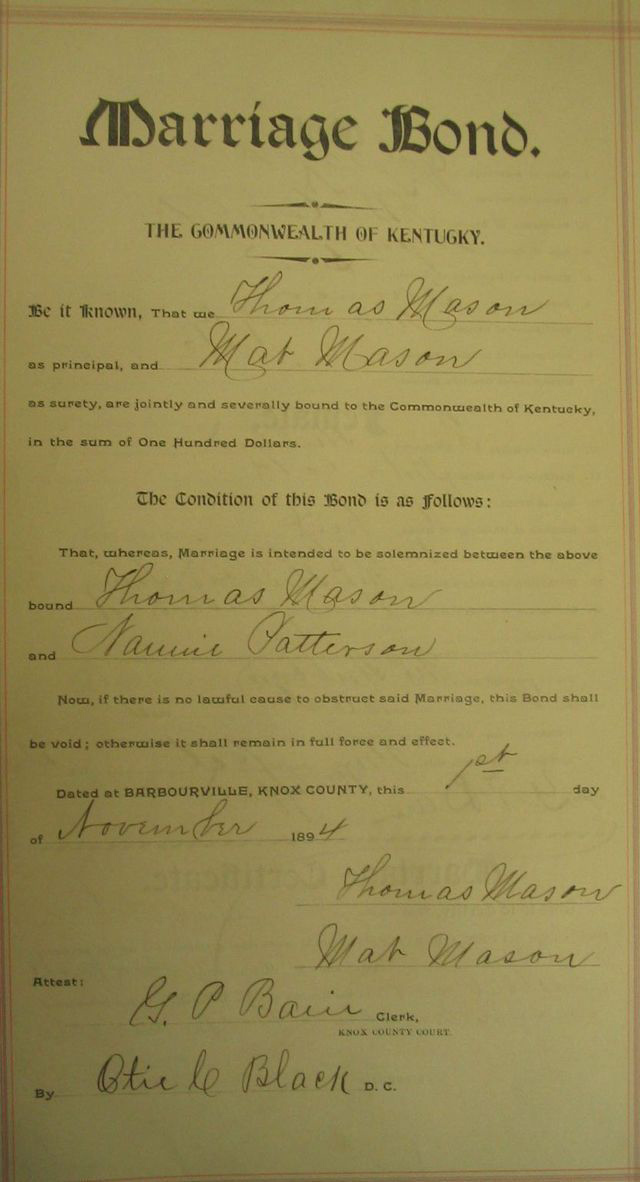 Marriage Bond.
THE COMMONWEALTH OF KENTUCKY.
Be it Known, That we Thomas Mason
as principal, and Mat Mason
as surety, are jointly and severally bound to the Commonwealth of Kentucky,
in the sum of One Hundred Dollars.
The Condition of this Bond is as Follows:
That, whereas, Marriage is intended to be solemnized between the above
bound Thomas Mason
and Nannie Patterson
Now, if there is no lawful cause to obstruct said Marriage, this Bond shall
be void; otherwise it shall remain in full force and effect.
Dated at BARBOURVILLE, KNOX COUNTY, this 1st day
of November 1894
Thomas Mason
Mat Mason
Attest:
G. P Bain Clerk,
KNOX COUNTY COURT.
By Otie C Black D. C.